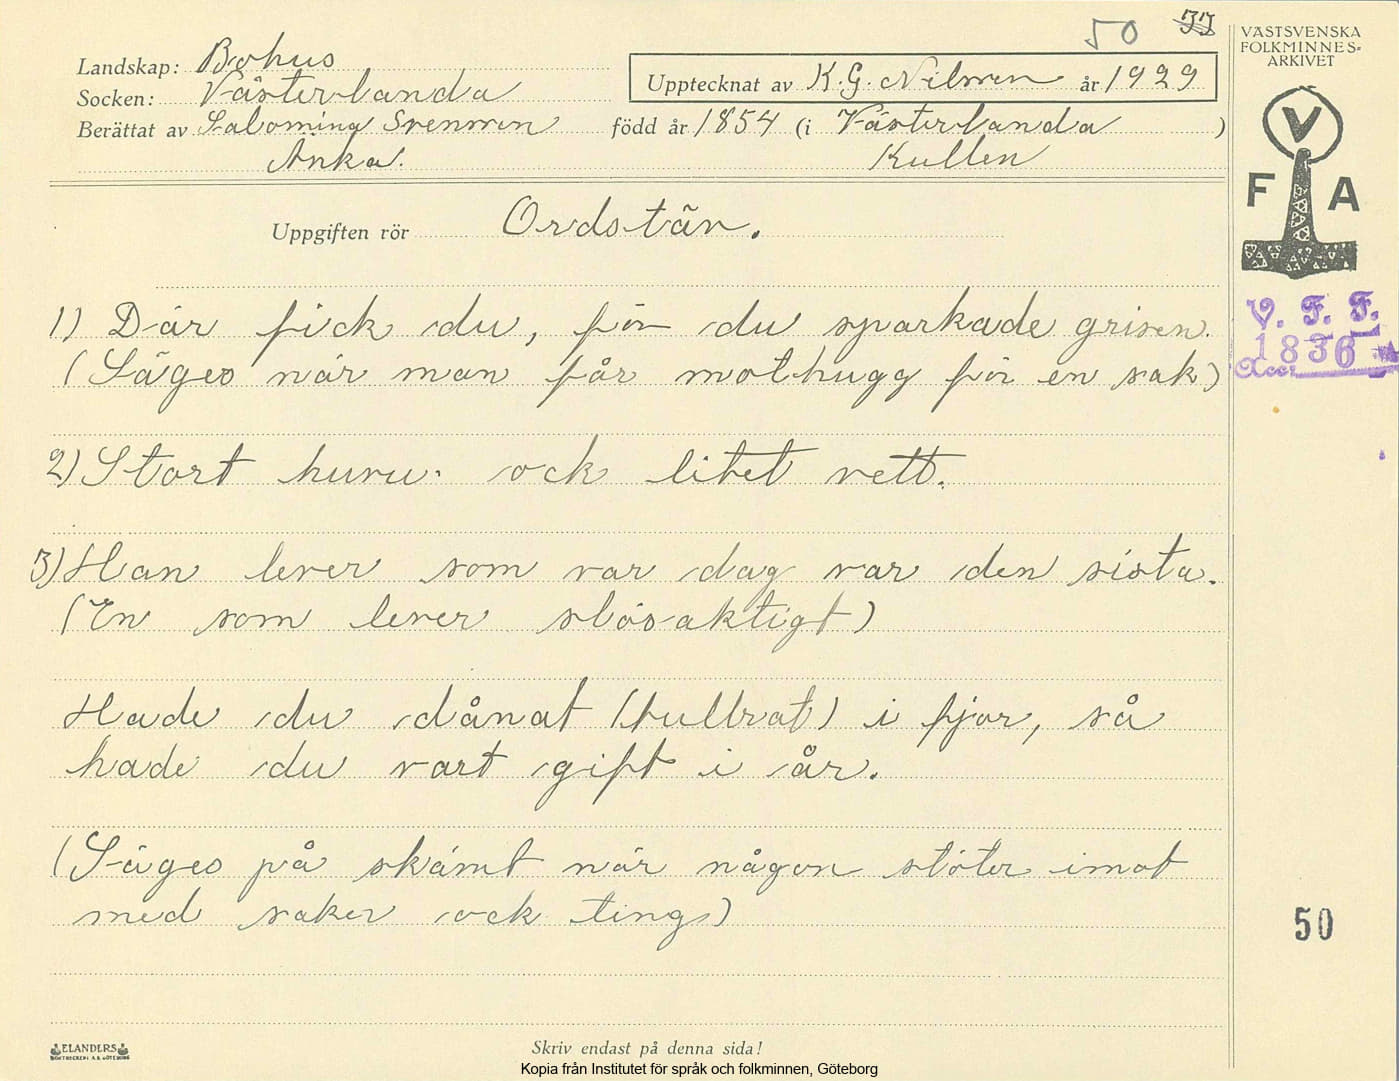 50 33
VÄSTSVENSKA
FOLKMINNES=
ARKIVET
Landskap: Bohus
Socken: Västerlanda
Upptecknat av K.G. Nilsson år 1929
Berättat av Salomina Svensson född år 1854 (i Västerlanda )
Anka. Kullen
V
F A
Uppgiften rör Ordstäv.
V. F. F.
1836
Acc.
1) Där fick du, för du sparkade grisen.
(Säges när man får mothugg för en sak)
2) Stort huvu. ock litet vett.
3) Han lever som var dag var den sista.
(En som lever slösaktigt)
Hade du dånat (bullrat) i fjor, så
hade du vart gift i år.
(Säges på skämt när någon stöter imot
med saker ock ting)
50
ELANDERS
BOKTRYCKERI A.B. GÖTEBORG
Skriv endast på denna sida!
Kopia från Institutet för språk och folkminnen, Göteborg